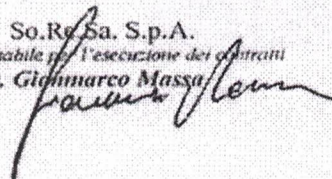 So.Re.Sa. S.p.A.
nabile per l'esecuzione dei contratti
. Gianmarco Massa